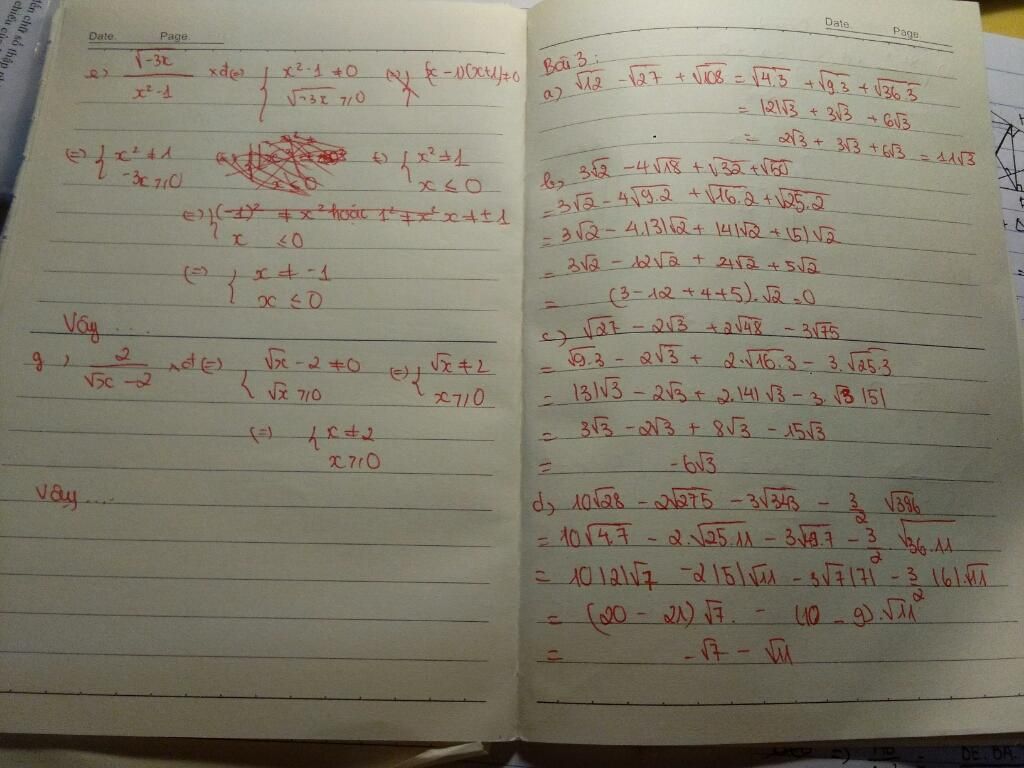 Date. Page.
e, √-3x / x²-1 xđ (=) { x²-1 ≠ 0 (=) { (x-1)(x+1) ≠ 0
√-3x ≥ 0
(=) { x² ≠ 1 (=) { x² ≠ 1
-3x ≥ 0 x ≤ 0
(=) { (-1)² ≠ x² hoặc 1² ≠ x² x ≠ ± 1
x ≤ 0
(=) { x ≠ -1
x ≤ 0
Vậy ....
g, 2 / √x - 2 xđ (=) { √x - 2 ≠ 0 (=) { √x ≠ 2
√x ≥ 0 x ≥ 0
(=) { x ≠ 2
x ≥ 0
Vậy ....
Date. Page.
Bài 3:
a) √12 - √27 + √108 = √4.3 + √9.3 + √36.3
= |2|√3 + 3√3 + 6√3
= 2√3 + 3√3 + 6√3 = 11√3
b, 3√2 - 4√18 + √32 + √50
= 3√2 - 4√9.2 + √16.2 + √25.2
= 3√2 - 4.|3|√2 + |4|√2 + |5|√2
= 3√2 - 12√2 + 4√2 + 5√2
= (3 - 12 + 4 + 5).√2 = 0
c, √27 - 2√3 + 2√48 - 3√75
= √9.3 - 2√3 + 2.√16.3 - 3.√25.3
= |3|√3 - 2√3 + 2.|4|√3 - 3.√3 |5|
= 3√3 - 2√3 + 8√3 - 15√3
= -6√3
d, 10√28 - 2√275 - 3√343 - 3/2 √396
= 10√4.7 - 2.√25.11 - 3√49.7 - 3/2 . √36.11
= 10|2|√7 - 2|5|√11 - 3√7|7| - 3/2 |6|√11
= (20 - 21)√7 . - (10 - 9).√11
= -√7 - √11